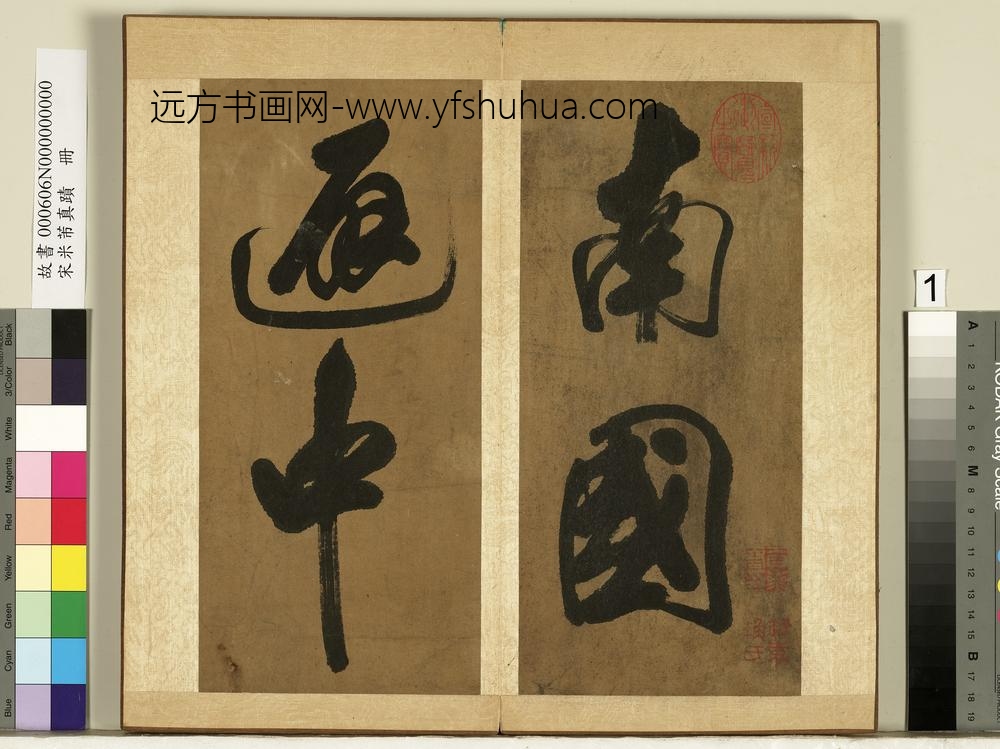 远方书画网-www.yfshuhua.com
南國
中
故書 000606N000000000
宋米芾真蹟 冊
1
Black
3/Color
White
Magenta
Red
Yellow
Green
Cyan
Blue
Gray Scale
A 1 2 3 4 5 6 M 8 9 10 11 12 13 14 15 B 17 18 19